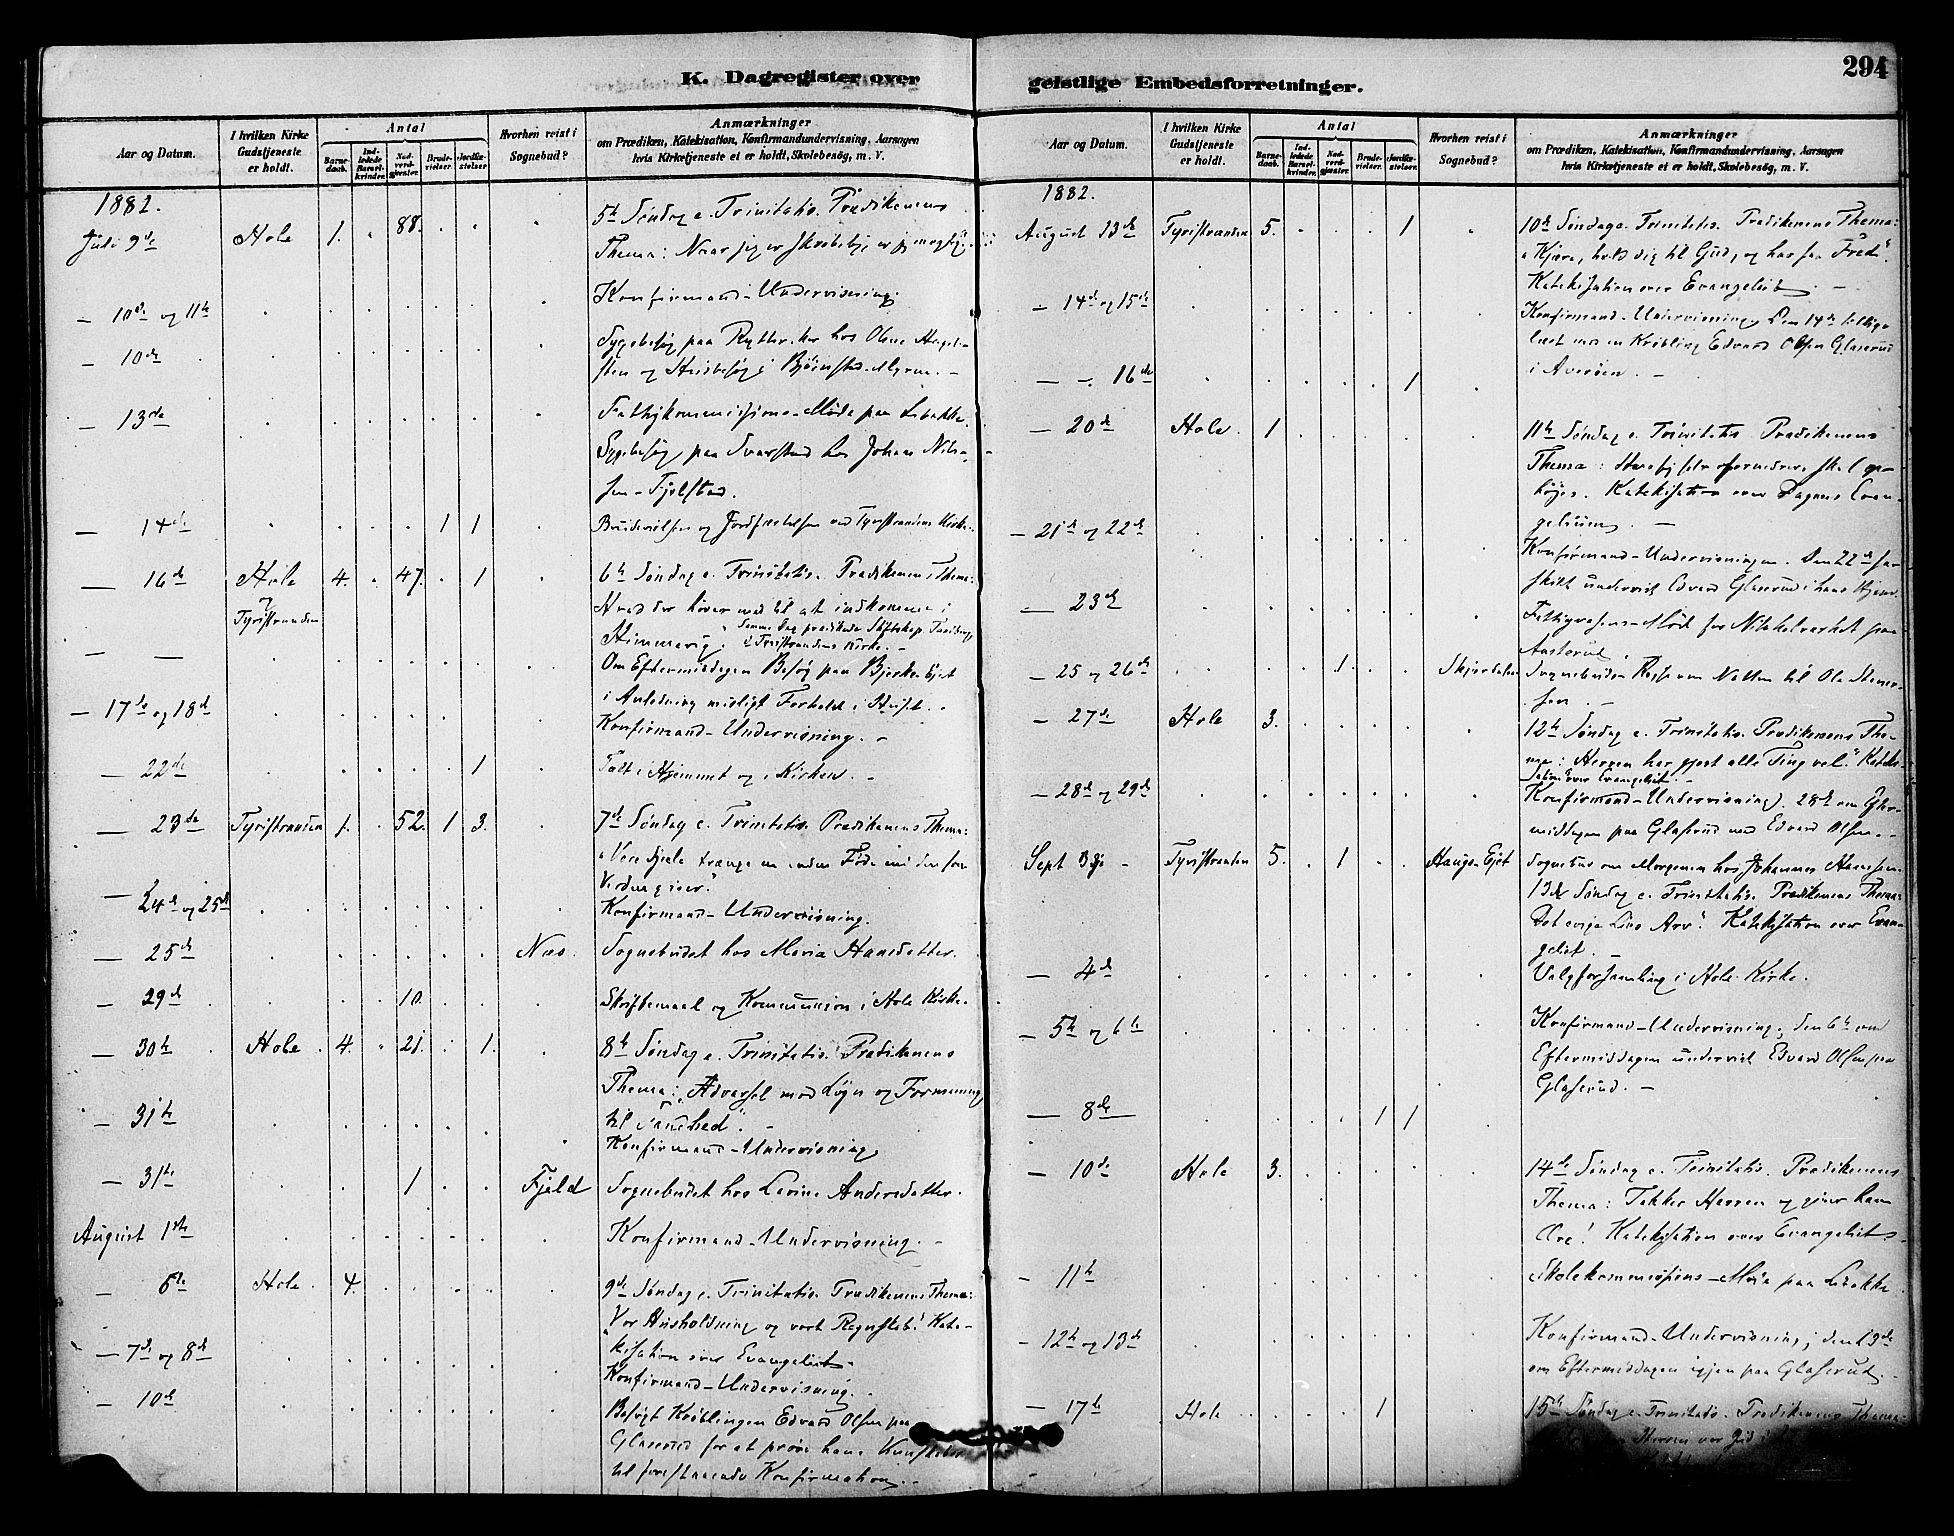 K. Dagregister over
Aar og Datum.
I hvilken Kirke Gudstjeneste er holdt.
Antal
Barnedaab.
Indledede Barselkvinder.
Nadverdgjæster.
Brudevielser.
Jordfæstelser.
Hvorhen reist i Sognebud?
Anmærkninger
om Prædiken, Katekisation, Konfirmandundervisning, Aarsagen
hvis Kirketjeneste ei er holdt, Skolebesøg, m. V.
1882.
Juli 9de Hole 1. 88. 5te Søndag e. Trinitatis. Prædikenens
Thema: Naar jeg er skrøbelig, er jeg mægtig.
— 10de og 11te Konfirmand-Undervisning.
— 10de Sygebesøg paa hos Olene
og Husbesøg i
— 13de Fathigkommissions-Møde paa Libakke.
Sygebesøg paa Svarstad hos Johan Nils-
sen-Fjelstad.
— 14de 1 1 Brudevielsen og Jordfæstelsen ved Tyristrandens Kirke.
— 16de Hole og Tyristranden 4. 47. 1 6te Søndag e. Trinitatis. Prædikenens Thema:
Hvad der hører med til at indkomme i
Himmerig. Samme Dag prædikede
i Tyristrandens Kirke. —
— — Om Eftermiddagen Besøg paa Bjerke-Ejet
i Anledning misligt Forhold i Huset. —
— 17de og 18de Konfirmand-Undervisning. —
— 22de 1 Talt i Hjemmet og i Kirken. —
— 23de Tyristranden 1. 52. 1 3. 7de Søndag e. Trinitatis. Prædikenens Thema:
„Vore Sjele trænge en anden Føde end den som
Verden giver."
— 24de og 25de Konfirmand-Undervisning.
— 25de Næs. Sognebudet hos Maria Hansdatter.
— 29de 10. Skriftemaal og Kommunion i Hole Kirke.
— 30te Hole 4. 21. 1. 8de Søndag e. Trinitatis. Prædikenens
Thema: „Advarsel mod Løgn og Formaning
til Sandhed". —
— 31te Konfirmand-Undervisning
— 31te 1 Fjeld Sognebudet hos Lavine Andersdatter.
August 1ste Konfirmand-Undervisning. —
— 6te Hole. 4. 9de Søndag e. Trinitatis. Prædikenens Thema:
„Vor Husholdning og vort Regnskab". Kate-
kisation over Evangeliet. —
— 7de og 8de Konfirmand-Undervisning.
— 10de Besøgt Krøblingen Edvard Olsen paa
Glaserud for at prøve hans Kundskaber
til forestaaende Konfirmation. —
geistlige Embedsforretninger.
294
Aar og Datum.
I hvilken Kirke Gudstjeneste er holdt.
Antal
Barnedaab.
Indledede Barselkvinder.
Nadverdgjæster.
Brudevielser.
Jordfæstelser.
Hvorhen reist i Sognebud?
Anmærkninger
om Prædiken, Katekisation, Konfirmandundervisning, Aarsagen
hvis Kirketjeneste ei er holdt, Skolebesøg, m. V.
1882.
August 13de Tyristranden 5. 1 10de Søndag e. Trinitatis. Prædikenens Thema:
„Kjære, hold dig til Gud, og hav saa Fred".
Katekisation over Evangeliet. —
— 14de og 15de Konfirmand-Undervisning. Den 14de tillige
læst med en Krøbling Edvard Olsen Glaserud
i Averøen. —
— 16de 1
— 20de Hole. 1 11te Søndag e. Trinitatis. Prædikenens
Thema: Hvo sig selv fornedrer skal op-
højes. Katekisation over Dagens Evan-
gelium. —
— 21de og 22de Konfirmand-Undervisningen. Den 22de sær-
skilt undervist Edvard Glaserud i hans Hjem.
— 23de Fattigvæsens-Møde for paa
— 25 og 26de 1. Skjærdalen Sognebuds-Rejse om Natten til Ole Stener-
sen. —
— 27de Hole 3. 12te Søndag e. Trinitatis. Prædikenens The-
ma: Herren har gjort alle Ting vel". Kateki-
sation over Evangeliet. —
— 28de og 29de Konfirmand-Undervisning. 28de om Efter-
middagen paa Glaserud med Edvard Olsen. —
Sept 3die — Tyristranden 5. 1 Haugs-Ejet Sognebud om Morgenen hos Johannes Hansen.
13de Søndag e. Trinitatis. Prædikenens Thema:
Det evige Livs Arv". Katekisation over Evan-
geliet. —
— 4de Valgforsamling i Hole Kirke.
— 5te og 6te Konfirmand-Undervisning, den 6te om
Eftermiddagen undervist Edvard Olsen paa
Glaserud. —
— 8de 1 1
— 10de Hole 3. 14de Søndag e. Trinitatis. Prædikenens
Thema: Takker Herren og giver ham
Ære! Katekisation over Evangeliet.
— 11te Skolekommissions-Møde paa Libakke
— 12te og 13de Konfirmand-Undervisning; den 13de
om Eftermiddagen igjen paa Glaserud. —
— 17de Hole 1 15de Søndag e. Trinitatis. Prædikenens Thema:
Herren vor Gud